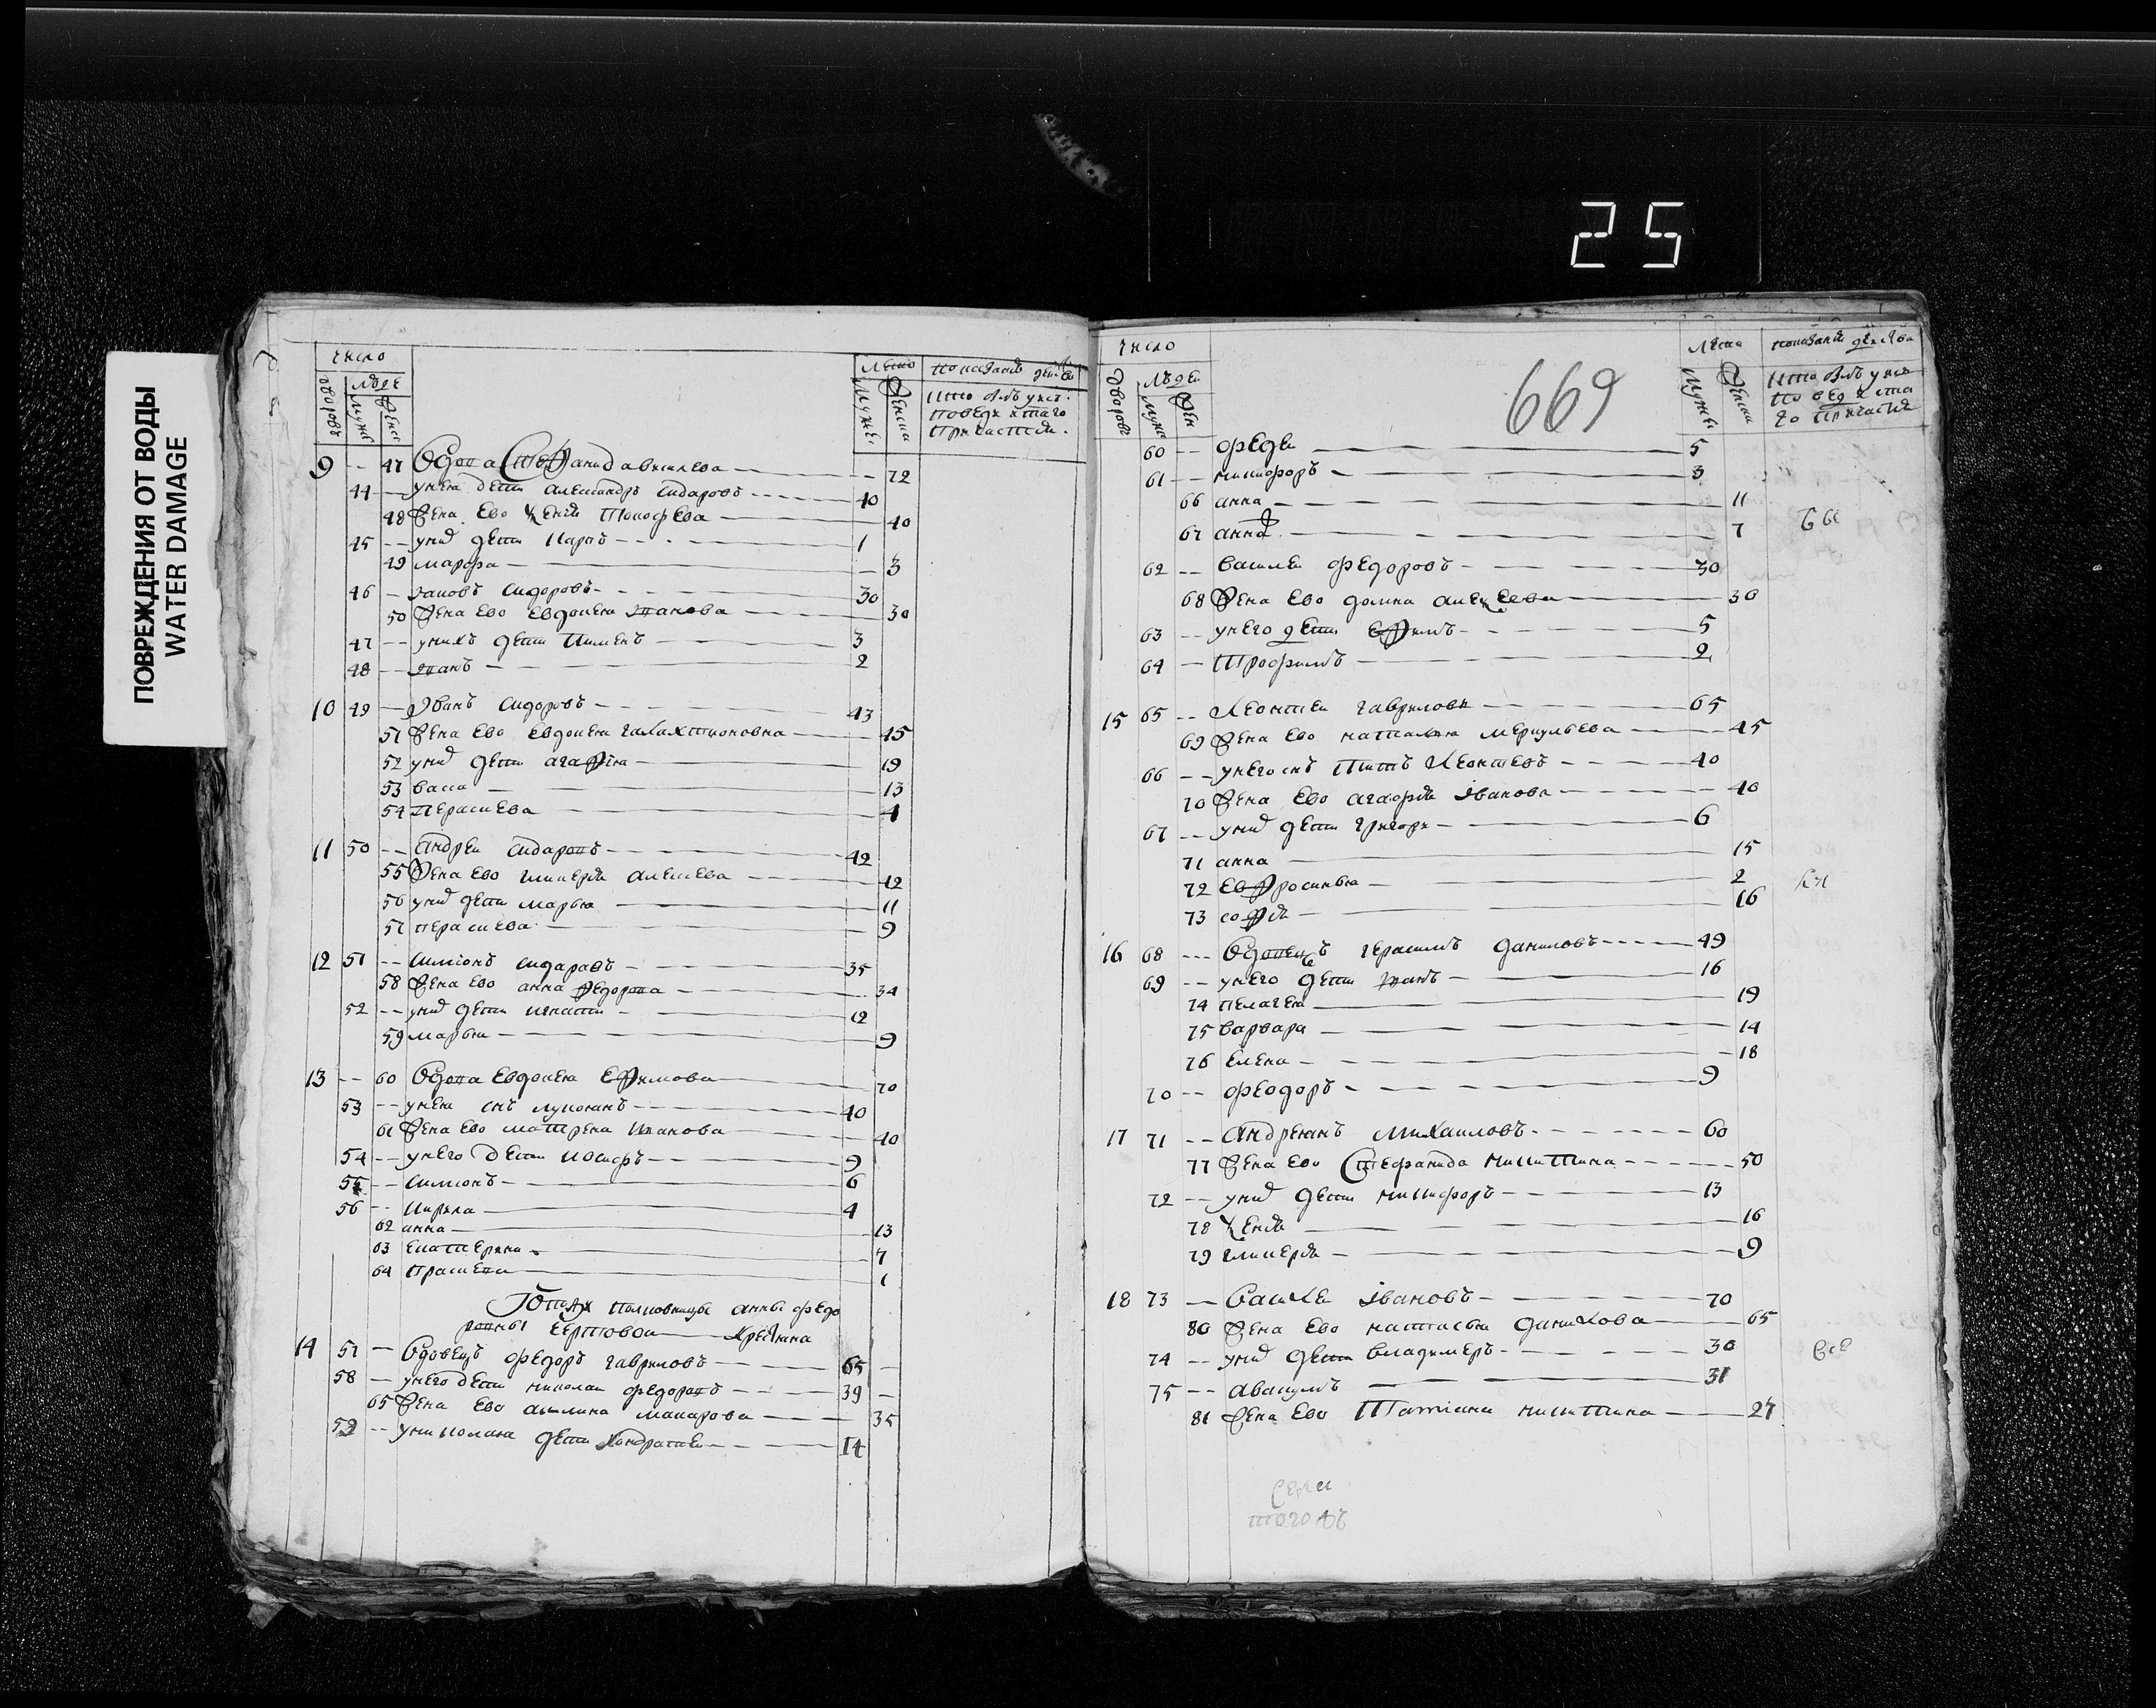 25
ПОВРЕЖДЕНИЯ ОТ ВОДЫ
WATER DAMAGE
число
дворовъ
людеи
мужес
женс
лета
мужес
женска
показание действа
кто былъ у исп
поведи и таго
причастия
9 -- 47 вдова Стефанида васильева -- 72
44 -- унея дети александръ сидаровъ 40
48 жена ево ксения тимофеева 40
45 -- униъ дети карпъ 1
49 марфа 3
46 -- яковъ сидоровъ 30
50 жена ево евдокия иванова 30
47 -- унихъ дети пименъ 3
48 -- иванъ 2
10 49 -- Иванъ сидоровъ 43
51 жена ево евдокия галахтионовна 45
52 униъ дети агафия 19
53 васа 13
54 Перасиева 4
11 50 -- андреи сидаровъ 42
55 жена ево гликерия алексева 42
56 униъ дети марья 11
57 перасиева 9
12 51 -- симионъ сидаравъ 35
58 жена ево анна федорова 34
52 -- униъ дети игнати 12
59 марья 9
13 -- 60 вдова евдокея ефимова 70
53 -- унея снъ лукиянъ 40
61 жена ево матрена иванова 40
54 -- унего дети иосифъ 9
55 -- симионъ 6
56 -- кирила 4
62 анна 13
63 екатерина 7
64 праскева 1
полковницы анны федо
ровны крестьяна
14 57 -- вдовецъ федоръ гавриловъ 65
58 -- унего дети николаи федоровъ 39
65 жена ево акилина макарова 35
59 -- униколая дети кондратеи 14
669
число
дворовъ
людеи
мужс
жен
лета
мужес
женска
показание действа
кто былъ у исп
поведи и та
го причастия
60 -- федеи 5
61 -- никифоръ 3
66 анна 11
67 анна 7
62 -- василеи федоровъ 30
68 жена ево домна алексеева 30
63 -- унего дети ефимъ 5
64 -- трофимъ 2
15 65 -- Леонтеи гавриловъ 65
69 жена ево наталья меркульева 45
66 -- унего снъ титъ леонтевъ 40
70 жена ево агафия иванова 40
67 -- униъ дети григори 6
71 анна 15
72 евфросинья 2
73 софия 16
16 68 -- вдовецъ герасимъ даниловъ 49
69 -- унего дети иванъ 16
74 пелагея 19
75 варвара 14
76 елена 18
70 -- феодоръ 9
17 71 -- андреянъ михаиловъ 60
77 жена ево Стефанида никитина 50
72 -- униъ дети никифоръ 13
78 ксения 16
79 гликерия 9
18 73 -- василеи ивановъ 70
80 жена ево настасья данилова 65
74 -- униъ дети владимеръ 30
75 -- авакумъ 31
81 жена ево татиана никитина 27
бы
все